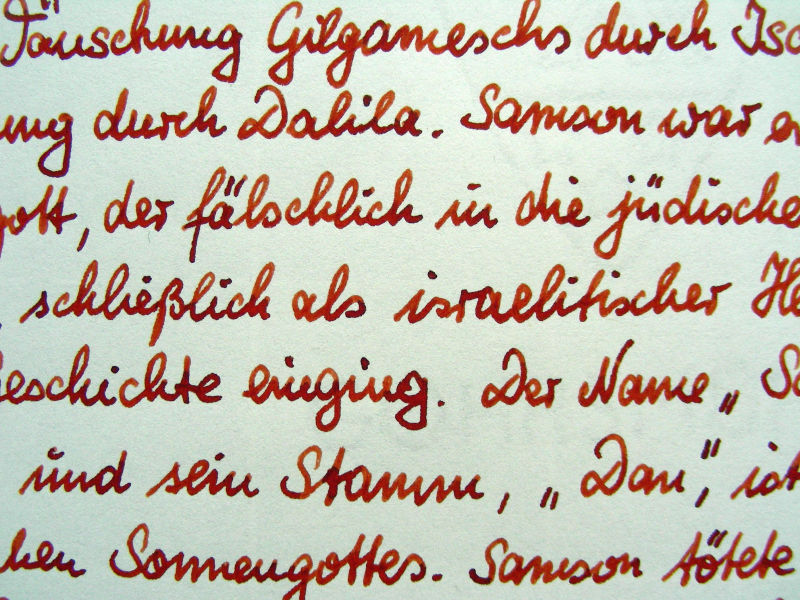 Täuschung Gilgameschs durch Isc
ung durch Dalila. Samson war e
gott, der fälschlich in die jüdische
, schließlich als israelitischer He
Geschichte einging. Der Name „Sa
und sein Stamm, „Dan“, ist
hen Sonnengottes. Samson tötete